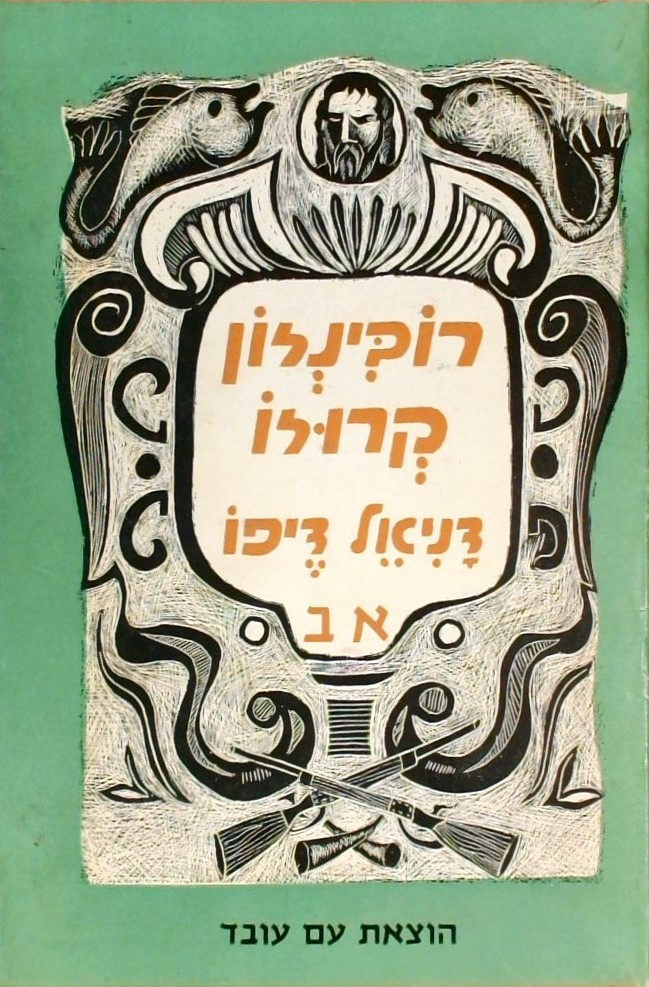 רוֹבִּינְסוֹן
קְרוּסוֹ
דָּנִיאֵל דֶּיפוֹ
א ב
הוצאת עם עובד